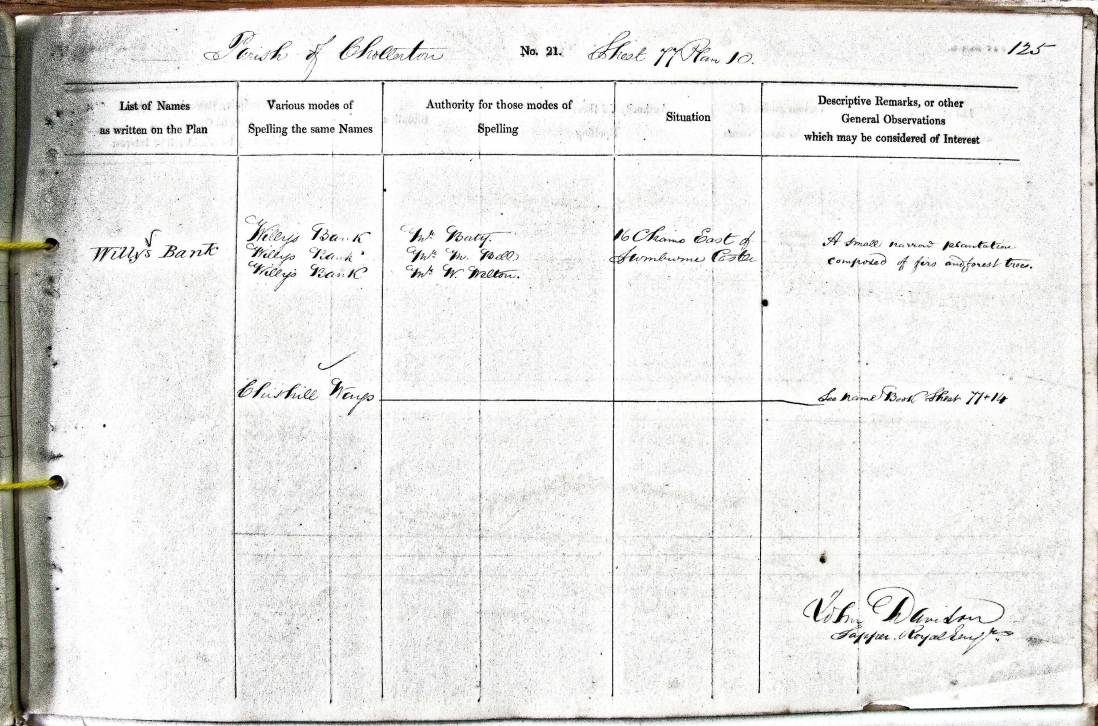 Parish of Chollerton No. 21. Sheet 77 Plan 10. 125
List of Names
as written on the Plan
Various modes of
Spelling the same Names
Authority for those modes of
Spelling
Situation
Descriptive Remarks, or other
General Observations
which may be considered of Interest
Willys Bank
Willys Bank
Willys Bank
Willys Bank
Mr. Baty.
Mr. M. Bell
Mr. W. Welton.
16 Chains East of
Swinburne Castle
A small narrow plantation
composed of firs and forest trees.
See Name Book Sheet 77+14
John Davison
Sapper. Royal Engrs.